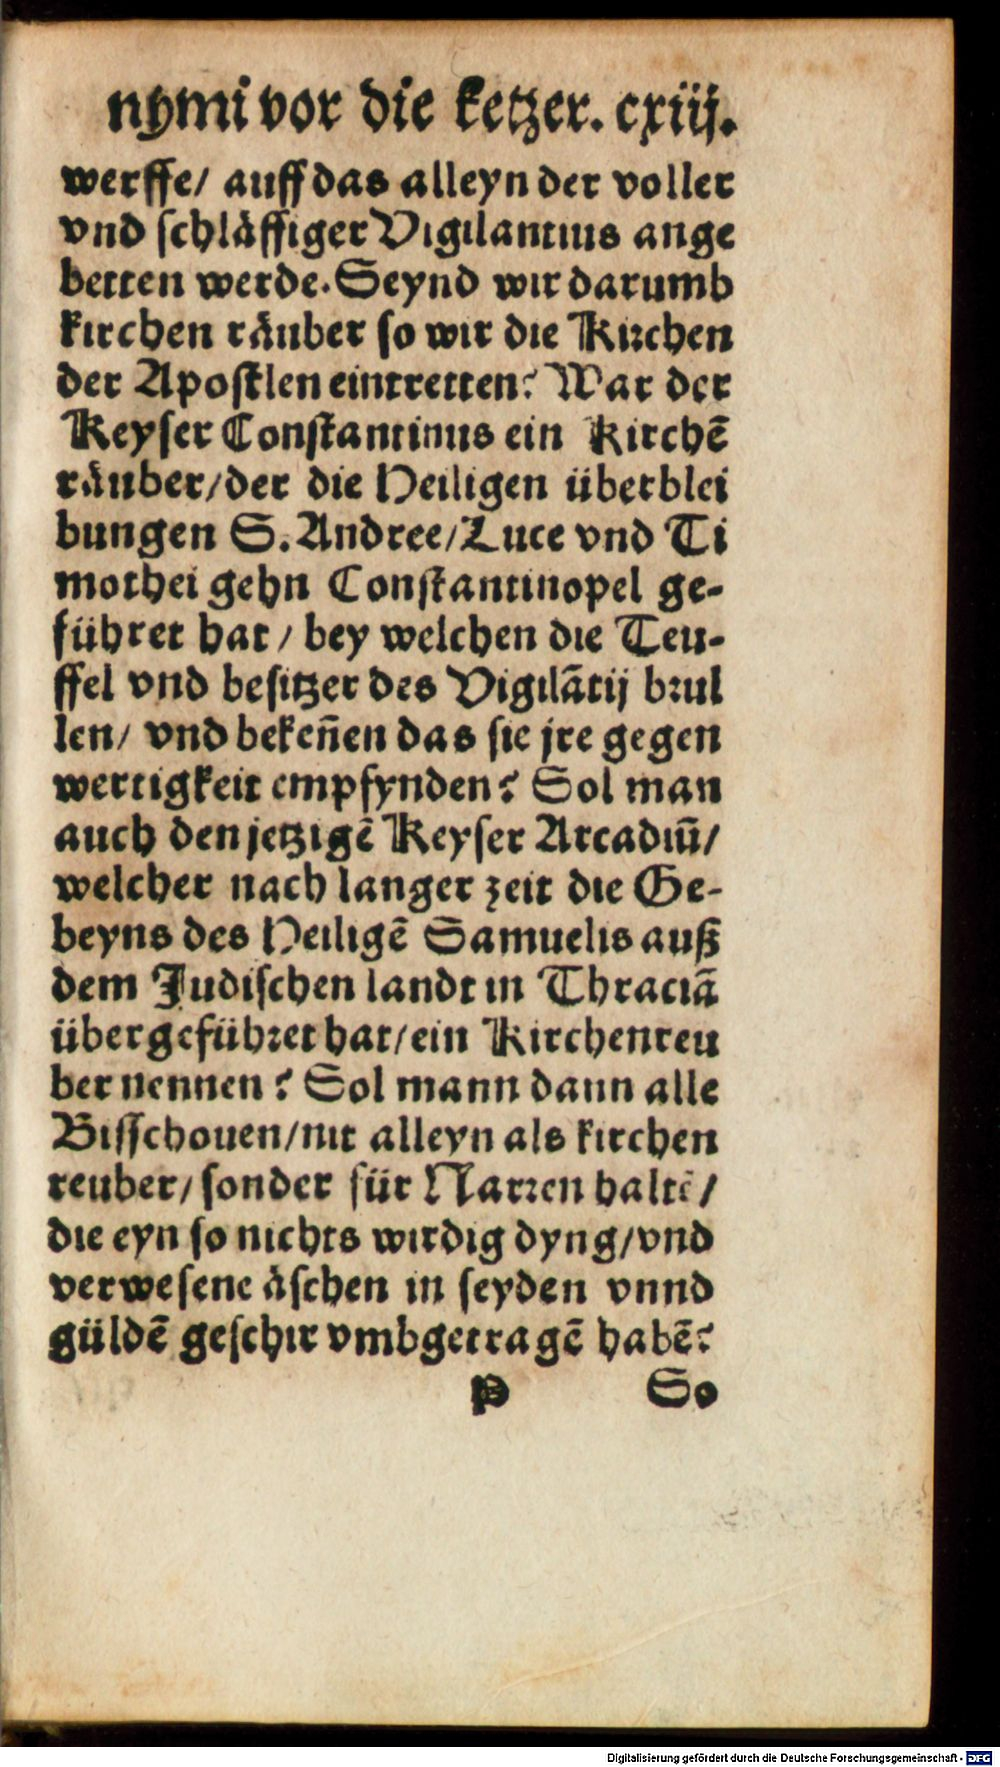 nymi vor die ketzer. cxiij.
werffe/ auff das alleyn der voller
vnd schläffiger Vigilantius ange
betten werde. Seynd wir darumb
kirchen räuber so wir die Kirchen
der Apostlen eintretten? War der
Keyser Constantinus ein Kirchẽ
räuber/der die Heiligen überblei
bungen S. Andree/Luce vnd Ti
mothei gehn Constantinopel ge-
führet hat / bey welchen die Teu-
ffel vnd besitzer des Vigilãtij brul
len/ vnd bekeñen das sie jre gegen
wertigkeit empfynden? Sol man
auch den jetzigẽ Keyser Arcadiũ/
welcher nach langer zeit die Ge-
beyns des Heiligẽ Samuelis auß
dem Judischen landt in Thraciã
übergeführet hat/ein Kirchenreu
ber nennen? Sol mann dann alle
Bisschouen/nit alleyn als kirchen
reuber/ sonder für Narren haltẽ/
die eyn so nichts wirdig dyng/vnd
verwesene äschen in seyden vnnd
güldẽ geschir vmbgetragẽ habẽ?
P So
Digitalisierung gefördert durch die Deutsche Forschungsgemeinschaft - DFG